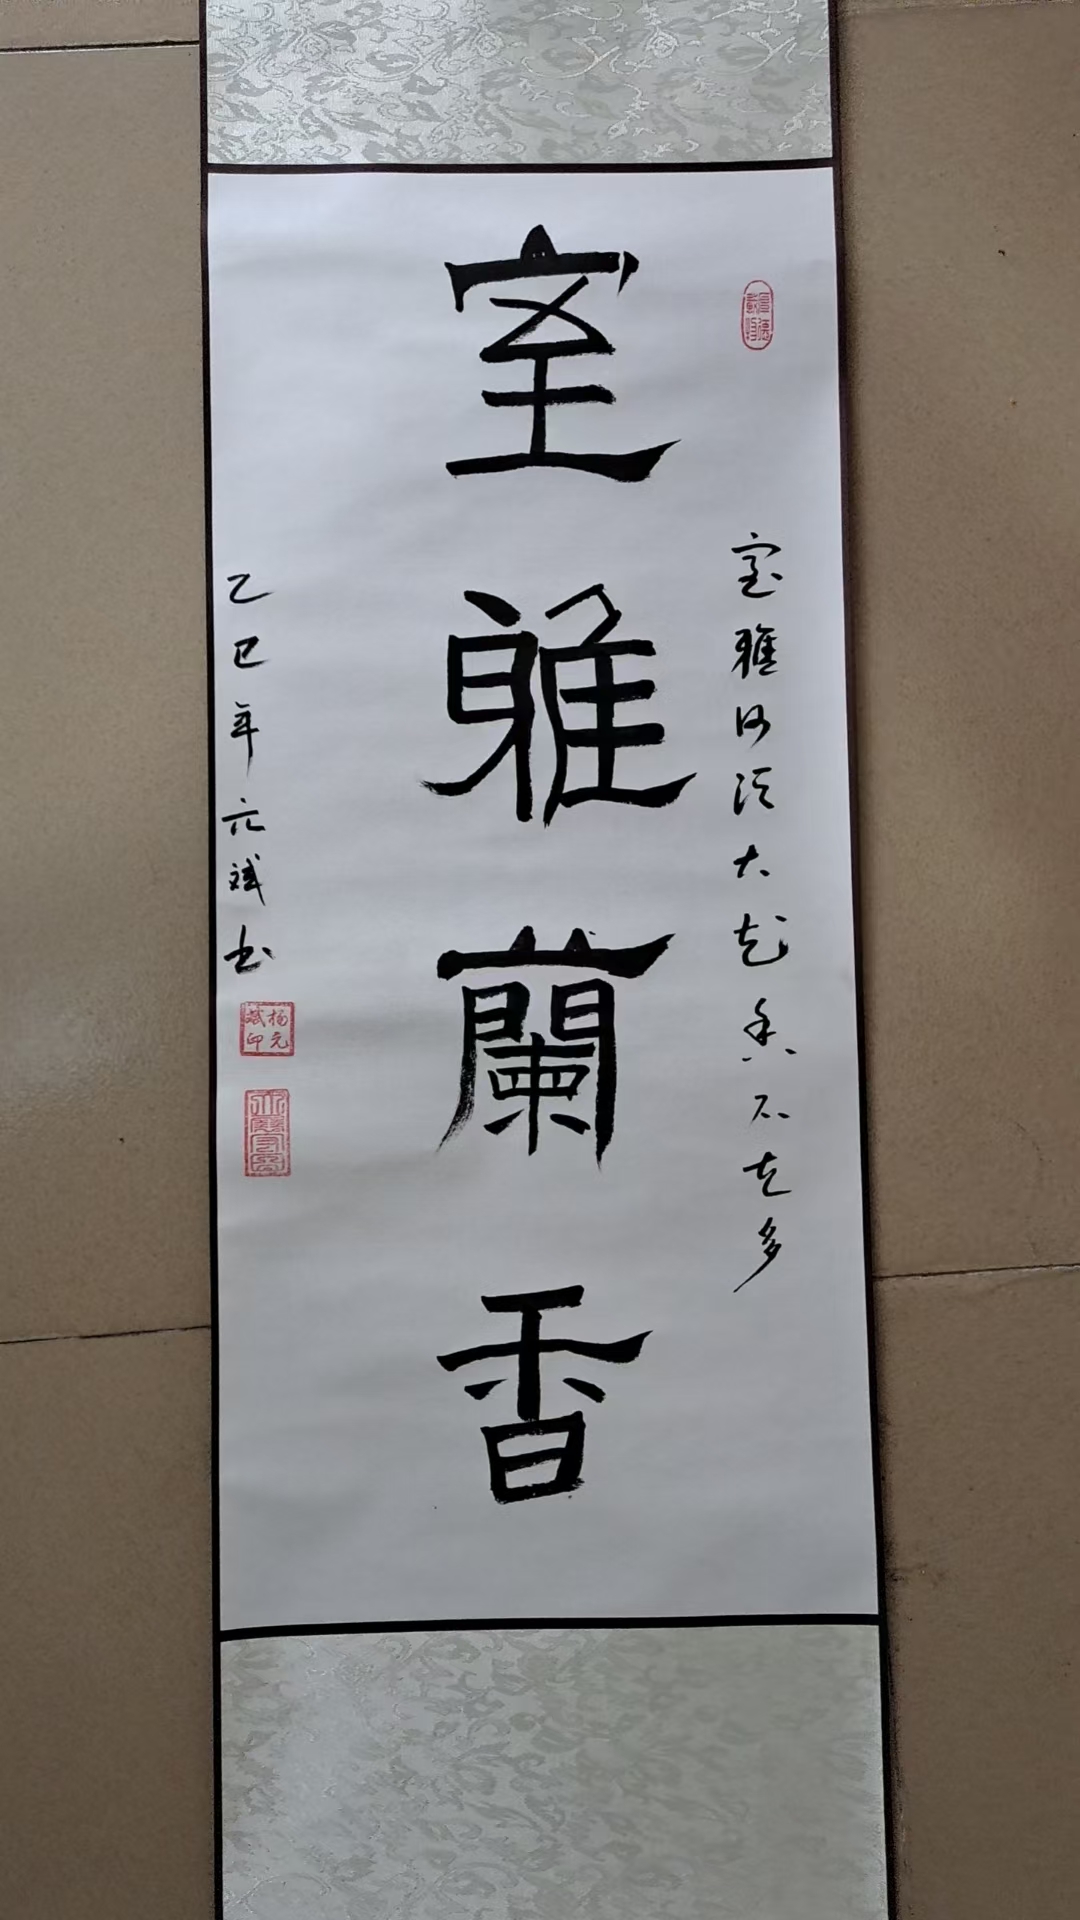 室雅何须大花香不在多
室雅蘭香
乙巳年元斌书
杨元斌印